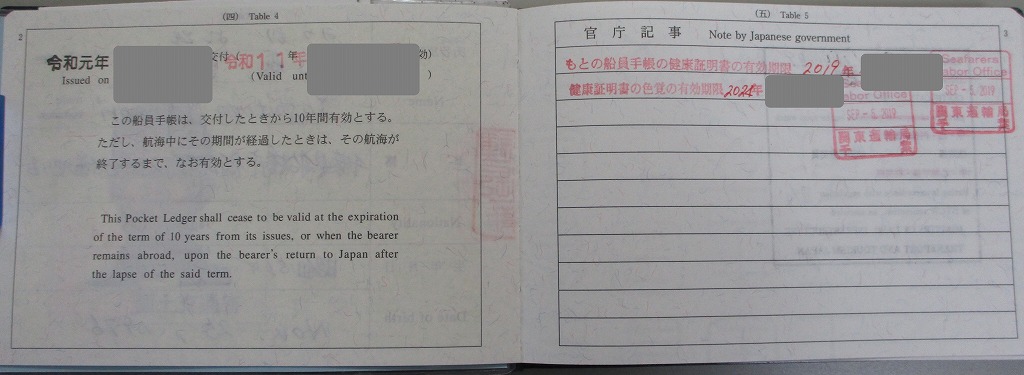 (四) Table 4
2
令和元年 交付 ( 令和11年 年 効)
Issued on (Valid unt )
この船員手帳は、交付したときから10年間有効とする。
ただし、航海中にその期間が経過したときは、その航海が
終了するまで、なお有効とする。
This Pocket Ledger shall cease to be valid at the expiration
of the term of 10 years from its issues, or when the bearer
remains abroad, upon the bearer's return to Japan after
the lapse of the said term.
(五) Table 5
3
官庁記事 Note by Japanese government
もとの船員手帳の健康証明書の有効期限 2019年
健康証明書の色覚の有効期限 年
Seafarers
Labor Office
SEP -5. 2019
関東運輸局
Labor Office
SEP -5. 2019
関東運輸局